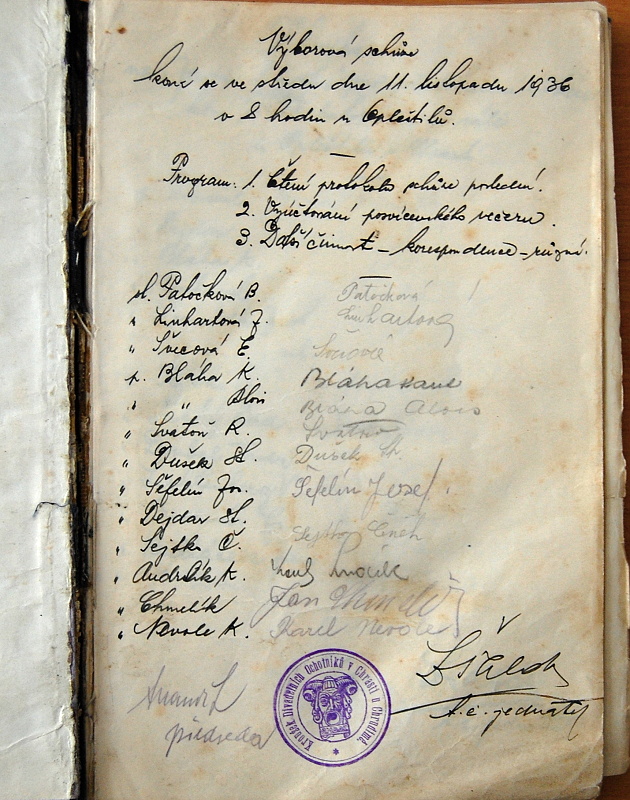 Výborová schůze
koná se ve středu dne 11. listopadu 1936
v 8 hodin u Opletilů.
Program: 1. Čtení protokolu schůze poslední.
2. Vyúčtování posvícenského večeru.
3. Další činnost – korespondence – různé.
sl. Patočková B. Patočková
" Linhartová J. Linhartová
" Švecová E. Švecová
p. Bláha K. Bláha Karel
" " Alois Bláha Alois
" Svatoň R. Svatoň
" Dušek St. Dušek St.
" Šefelín Jos. Šefelín Josef.
" Dejdar St.
" Sejtko Č. Sejtko Čeněk
" Andrlík K.
" Chmelík Jan Chmelík
" Nevole K. Karel Nevole
předseda
t. č. jednatel
Kroužek Divadelních Ochotníků v Chrasti u Chrudimě